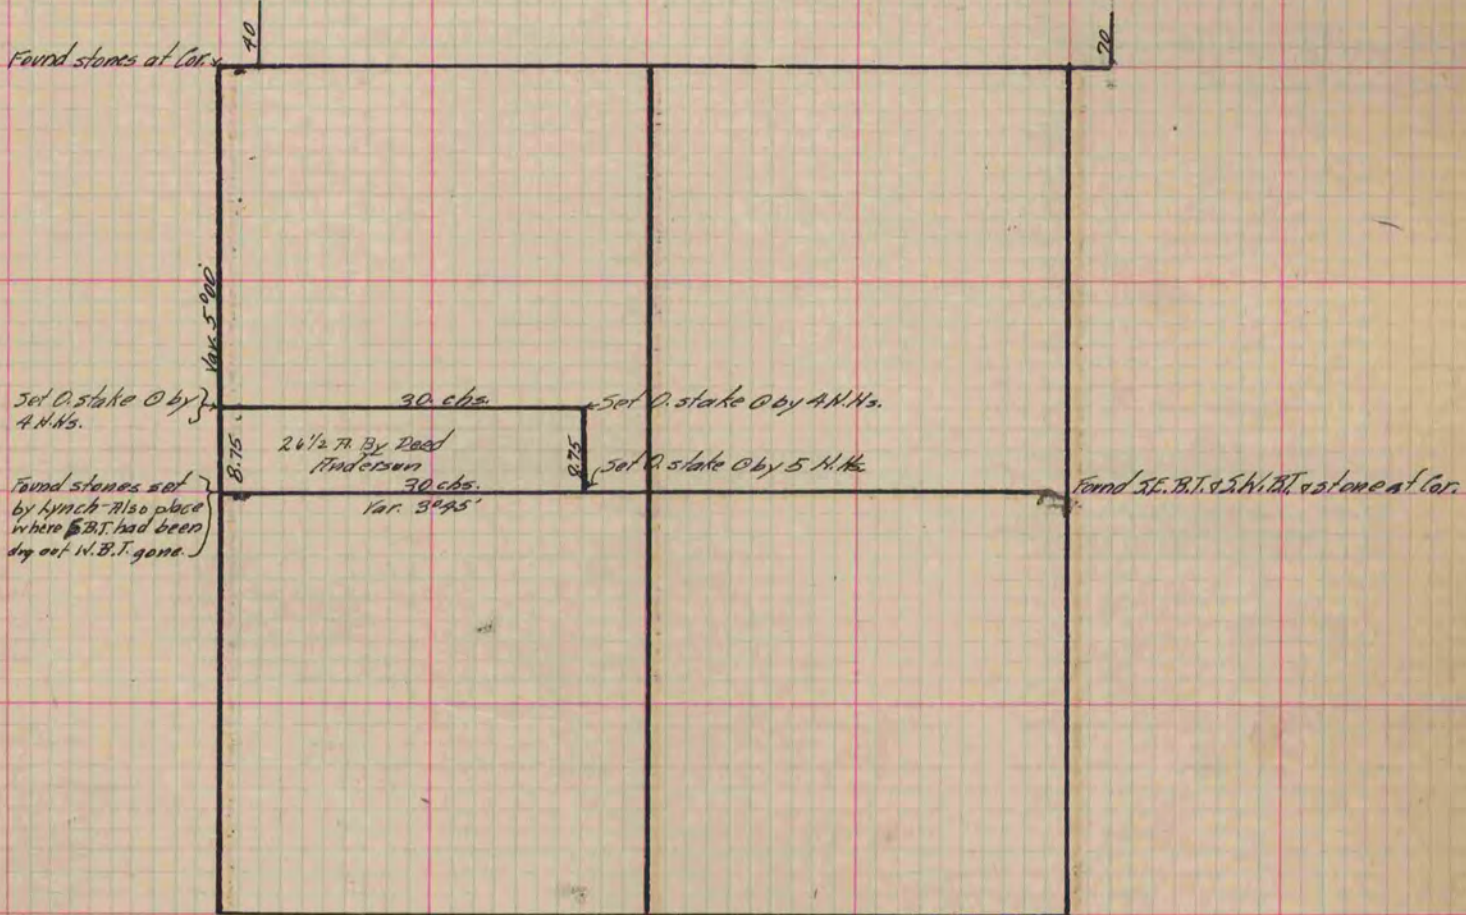 40
20
Found stones at Cor.
Var. 5°00'
Set O. stake ⊙ by
4 H.Hs.
30 chs.
Set O. stake ⊙ by 4 H.Hs.
8.75
26 1/2 A. By Deed
Anderson
8.75
Set O. stake ⊙ by 5 H.Hs.
30 chs.
Var. 3°45'
Found stones set
by Lynch - Also place
where B.T. had been
dug out W.B.T. gone.
Found S.E. B.T. & S.W. B.T. & stone at Cor.